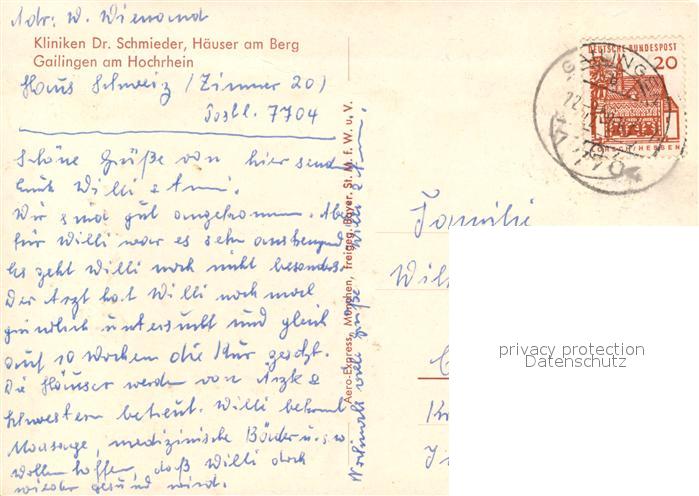 Adr: W. Wienand
Kliniken Dr. Schmieder, Häuser am Berg
Gailingen am Hochrhein
Haus Schweiz (Zimmer 20)
Postl. 7704
Schöne Grüße von hier send
Euch Willi & Anni.
Wir sind gut angekommen. Aber
für Willi war es sehr anstrengend
Es geht Willi noch nicht besonders.
Der Arzt hat Willi noch mal
gründlich untersucht und gleich
auf 10 Wochen die Kur gesetzt.
Die Häuser werden von Ärzte &
Schwestern betreut. Willi bekommt
Massage, medizinische Bäder u.s.w
Wollen hoffen, daß Willi doch
wieder gesund wird.
Nochmals viele Grüße Willi & Anni
Aero-Express, München, freigeg. Bayer. St. M. f. W. u. V.
DEUTSCHE BUNDESPOST
20
LORSCH/HESSEN
GAILINGEN
7704
Familie
privacy protection
Datenschutz